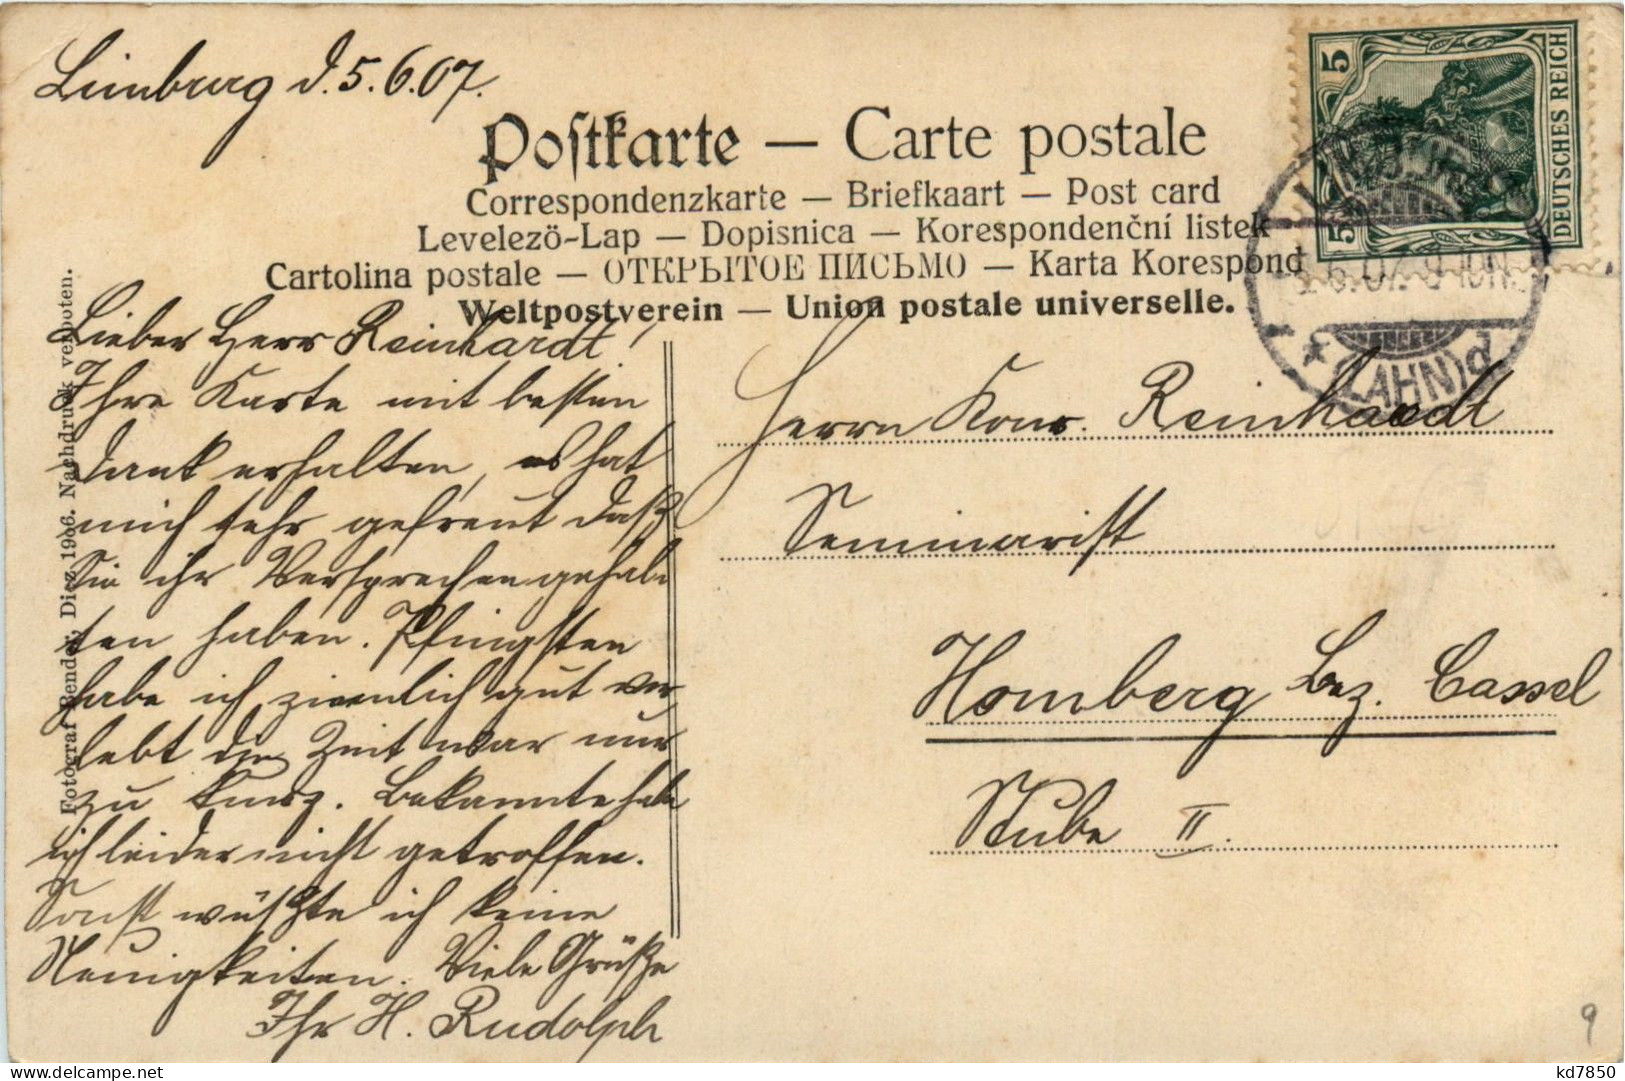 Limburg d. 5.6.07.
Postkarte — Carte postale
Correspondenzkarte — Briefkaart — Post card
Levelezö-Lap — Dopisnica — Korespondenční listek
Cartolina postale — ОТКРЫТОЕ ПИСЬМО — Karta Korespond
Weltpostverein — Union postale universelle.
5
5
DEUTSCHES REICH
LIMBURG
6.07. 8-10N.
* (LAHN) d
Fotograf Bender, Diez 1906. Nachdruck verboten.
Lieber Herr Reinhardt!
Ihre Karte mit besten
Dank erhalten, es hat
mich sehr gefreut daß
Sie ihr Versprechen gehal-
ten haben. Pfingsten
habe ich ziemlich gut ver-
lebt die Zeit war nur
zu kurz. Bekannte habe
ich leider nicht getroffen.
Sonst wüßte ich keine
Neuigkeiten. Viele Grüße
Ihr H. Rudolph
Herrn Konr. Reinhardt
Seminarist
Homberg Bez. Cassel
Stube II.
9
kd7850